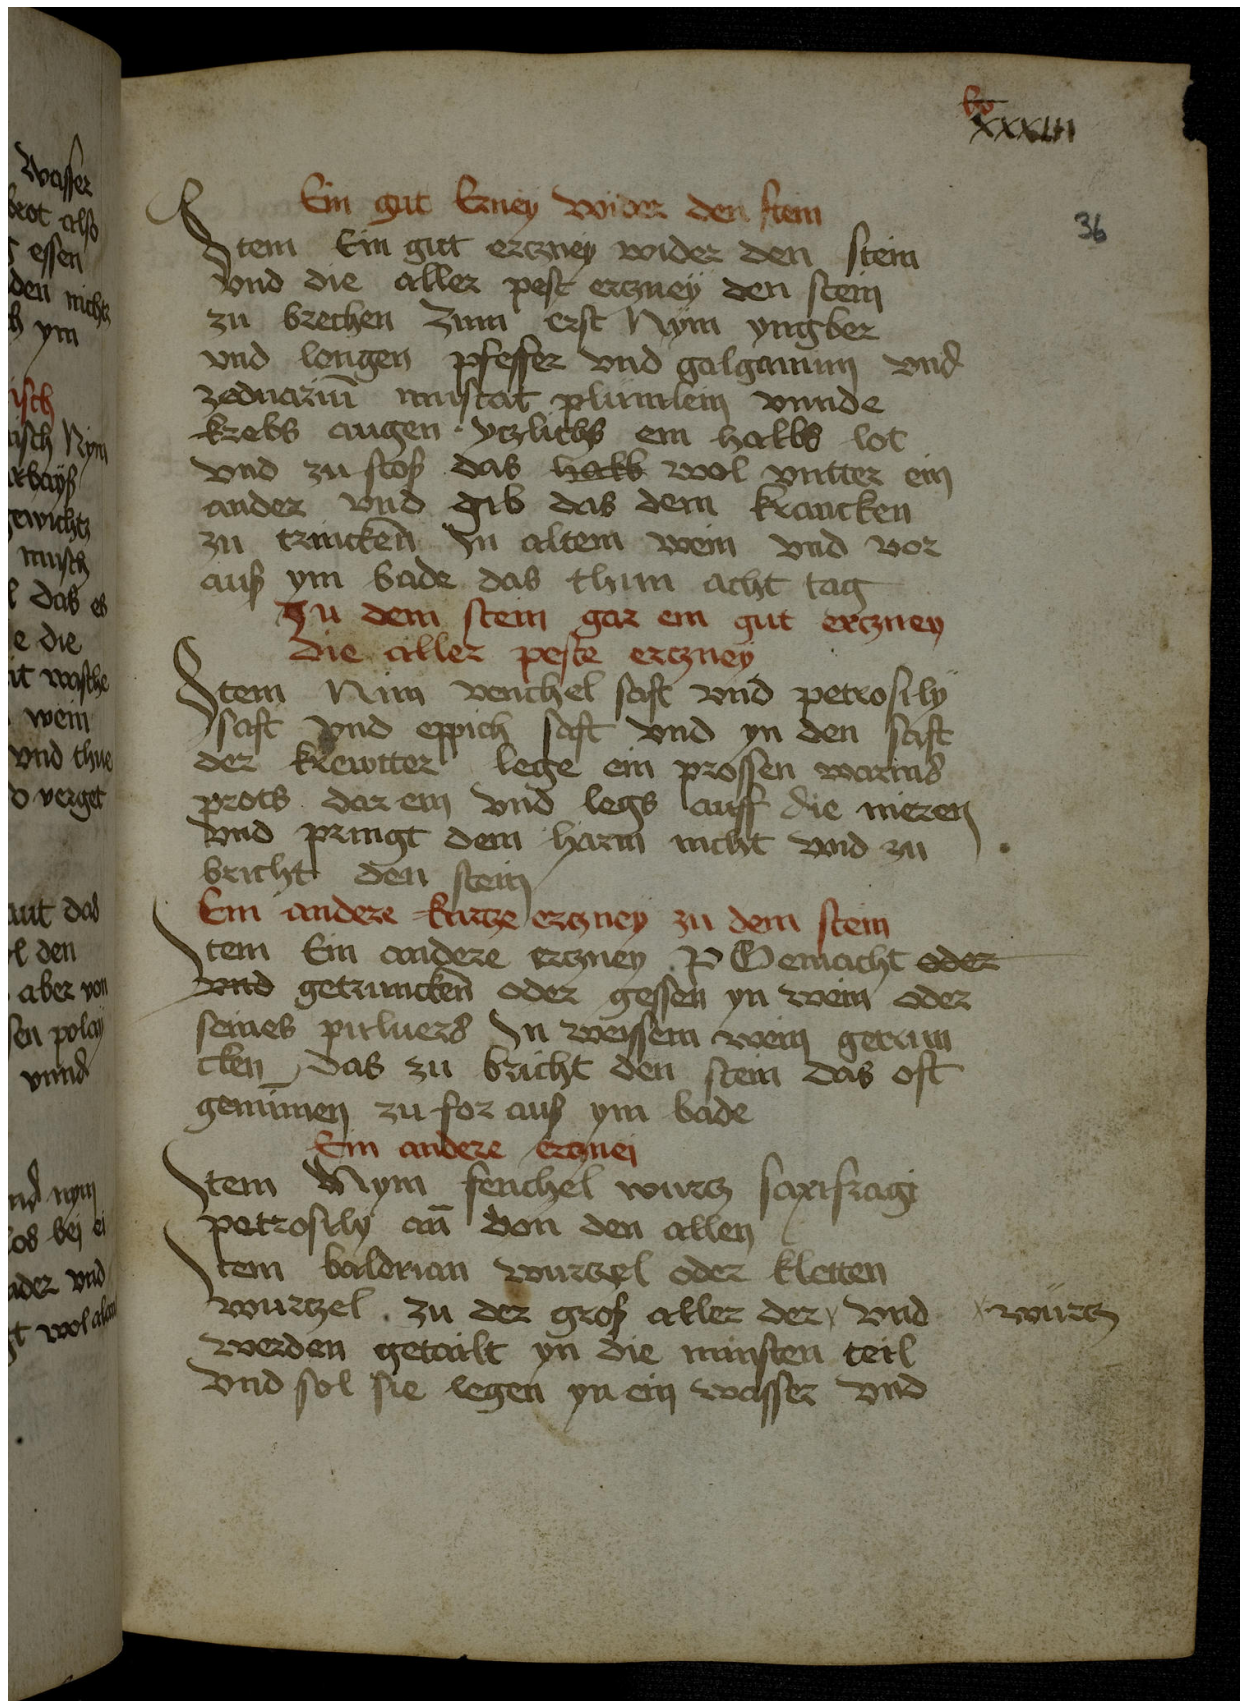 xxxiii
36
Ein gut Erzney wider den stein
Item Ein gut erczney wider den stein
vnd die aller pest erczneÿ den stein
zu brechen Zum erst Nÿm yngber
vnd longen pfeffer vnd galganum vnd
zeduariū muscat plumlein vnnde
krebs augen yczlichs ein halbs lot
vnd zu stoß das halb wol vntter ein
ander vnd gib das dem krancken
zu trinckeñ In altem wein vnd vor
auß ym bade das thun acht tag
Zu dem stein gar ein gut erczney
die aller peste erczneÿ
Item Nim venchel saft vnd petrosilÿ
saft vnd eppich saft vnd yn den saft
der krewtter lege ein prossen warms
prots dar ein vnd legs auff die nieren
vnd pringt dem harm nicht vnd zu
bricht den stein
Ein andere kurcze erczney zu dem stein
Item Ein andere erczney Gemacht oder
vnd getrunckeñ oder gessen yn wein oder
seines puluers In weissem wein getrun
cken das zu bricht den stein das oft
genumen zu for auß ym bade
Ein andere ercznei
Item Nym fenchel wurcz saxifragi
petrosilÿ añ von den allen
Item baldrian wurczel oder kletten
wurczel zu der groß aller der x vnd x wurcz
werden getailt yn die minsten teil
vnd sol sie legen yn ein wasser vnd